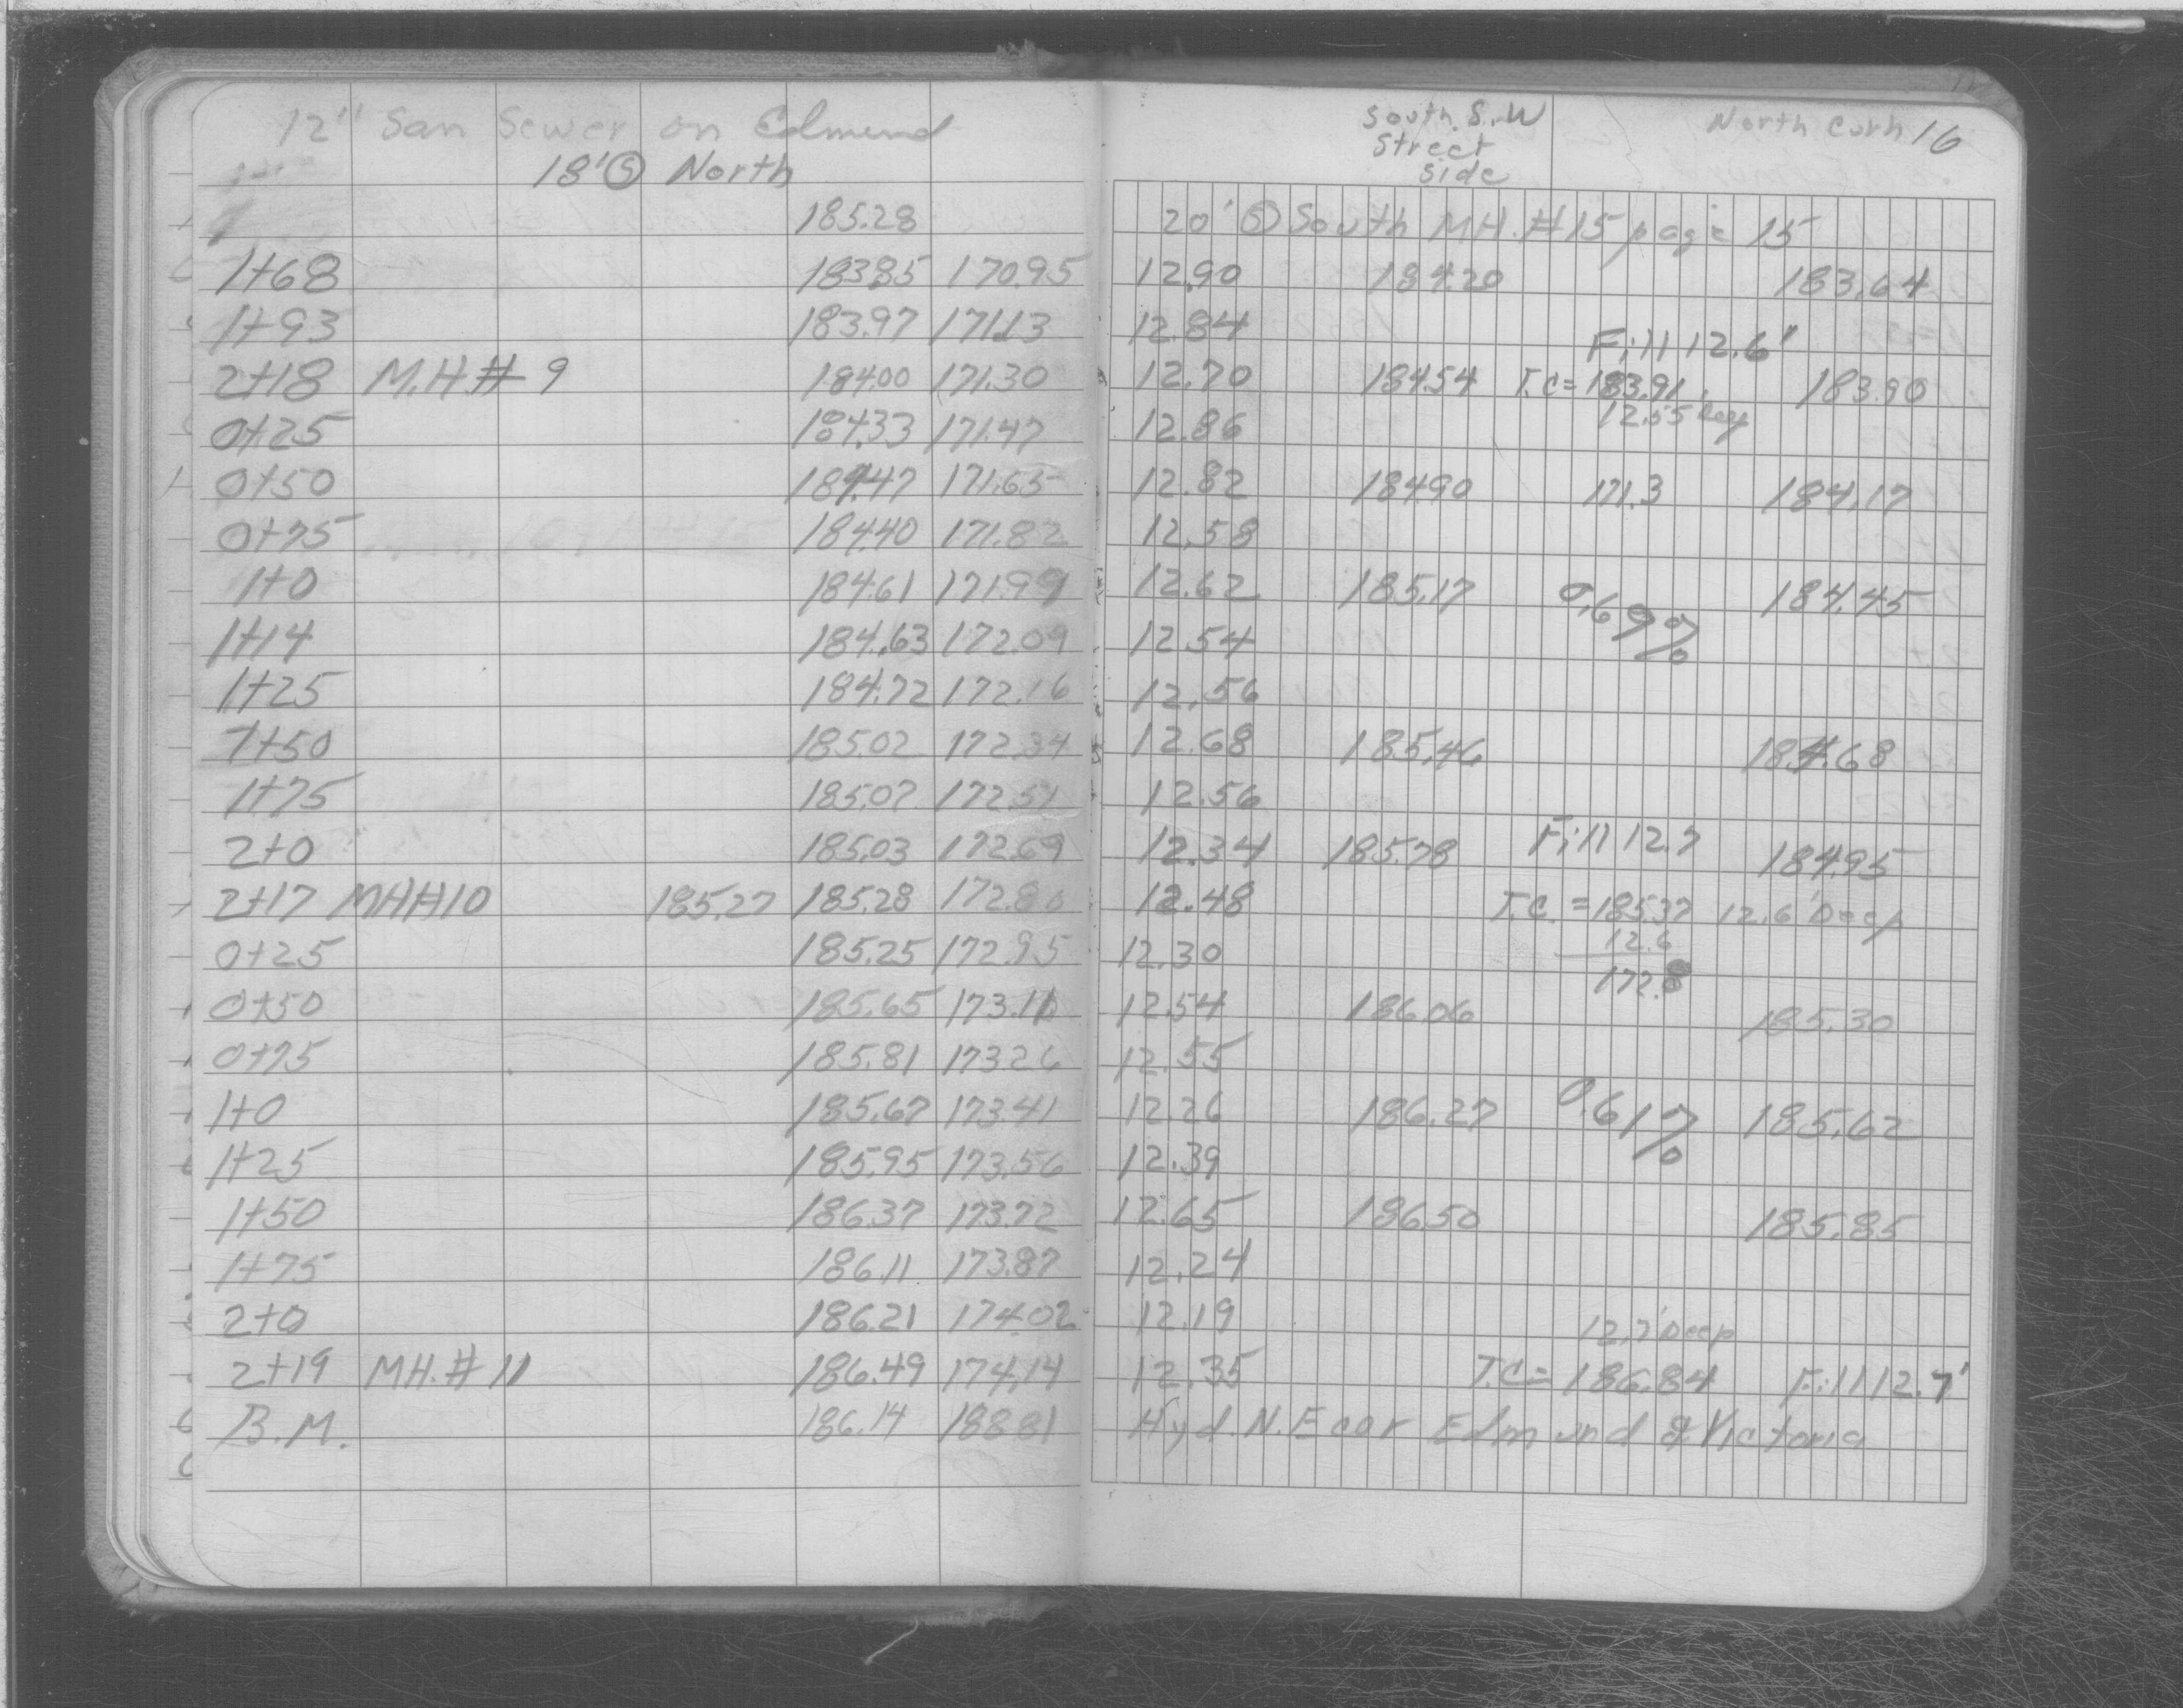 12" San Sewer on Edmund South S.W North Curb 16
18' Ⓢ North Street
Side
185.28 20' Ⓢ South MH.#15 page 15
1+68 183.85 170.95 12.90 184.20 183.64
1+93 183.97 171.13 12.84 Fill 12.6'
2+18 M.H.# 9 184.00 171.30 12.70 184.54 T.C=183.91 183.90
0+25 184.33 171.47 12.86 12.55 Deep
0+50 184.47 171.65 12.82 184.90 171.3 184.17
0+75 184.40 171.82 12.58
1+0 184.61 171.99 12.62 185.17 0.69% 184.45
1+14 184.63 172.09 12.54
1+25 184.72 172.16 12.56
1+50 185.02 172.34 12.68 185.46 184.68
1+75 185.07 172.51 12.56
2+0 185.03 172.69 12.34 185.78 Fill 12.7 184.95
2+17 MH#10 185.27 185.28 172.80 12.48 T.C. =185.37 12.6' Deep
0+25 185.25 172.95 12.30 12.6
172.8
0+50 185.65 173.11 12.54 186.06 185.30
0+75 185.81 173.26 12.55
1+0 185.67 173.41 12.26 186.27 0.61% 185.62
1+25 185.95 173.56 12.39
1+50 186.37 173.72 12.65 186.50 185.85
1+75 186.11 173.87 12.24
2+0 186.21 174.02 12.19 12.7' Deep
2+19 MH.# 11 186.49 174.14 12.35 T.C= 186.84 Fill 12.7'
B.M. 186.14 188.81 Hyd. N.E cor Edmund & Victoria